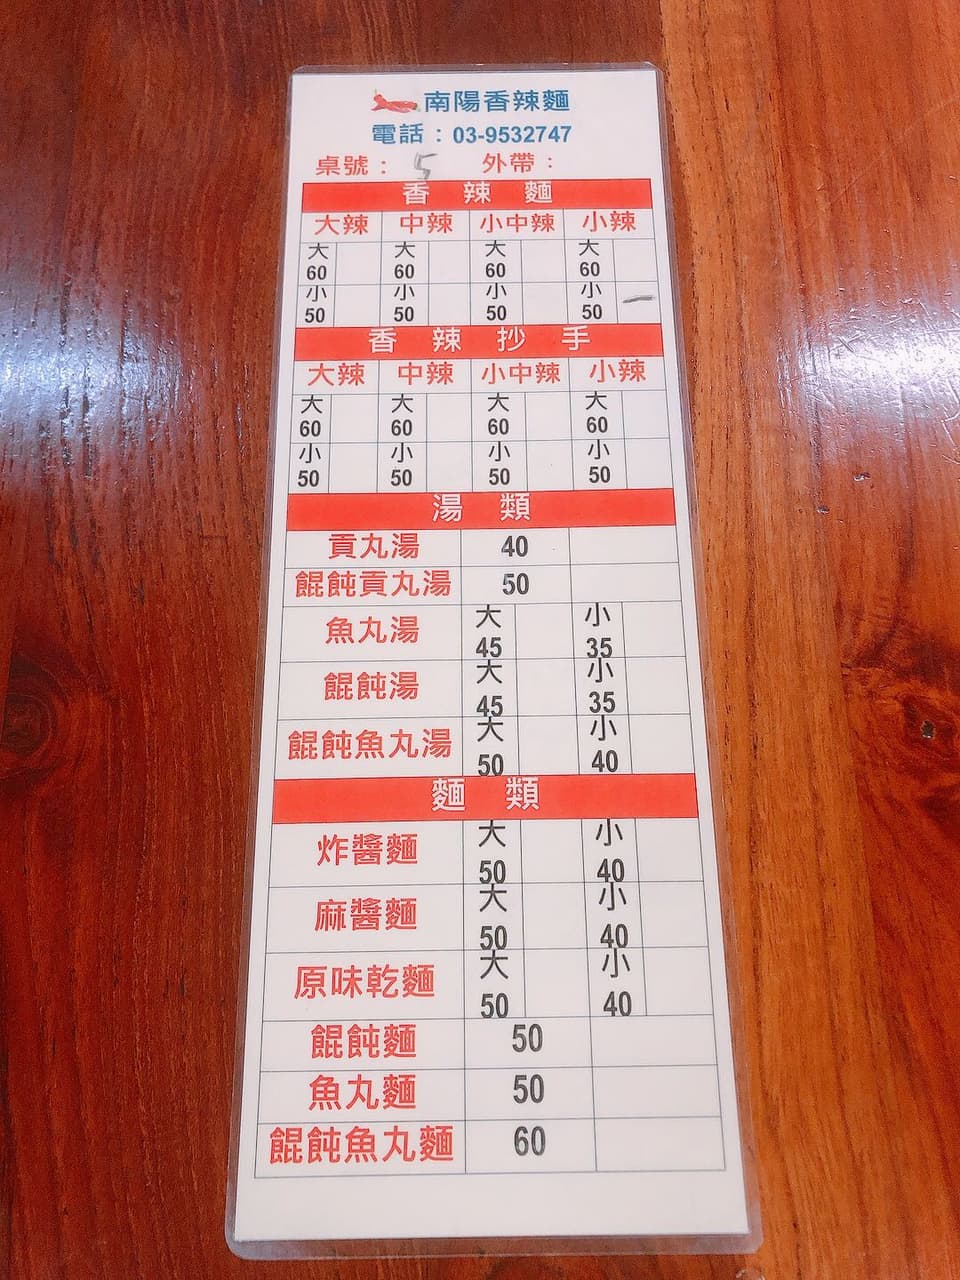 南陽香辣麵
電話：03-9532747
桌號： 5 外帶：
香辣麵
大辣 中辣 小中辣 小辣
大 大 大 大
60 60 60 60
小 小 小 小
50 50 50 50
香辣抄手
大辣 中辣 小中辣 小辣
大 大 大 大
60 60 60 60
小 小 小 小
50 50 50 50
湯類
貢丸湯 40
餛飩貢丸湯 50
魚丸湯 大 45 小 35
餛飩湯 大 45 小 35
餛飩魚丸湯 大 50 小 40
麵類
炸醬麵 大 50 小 40
麻醬麵 大 50 小 40
原味乾麵 大 50 小 40
餛飩麵 50
魚丸麵 50
餛飩魚丸麵 60